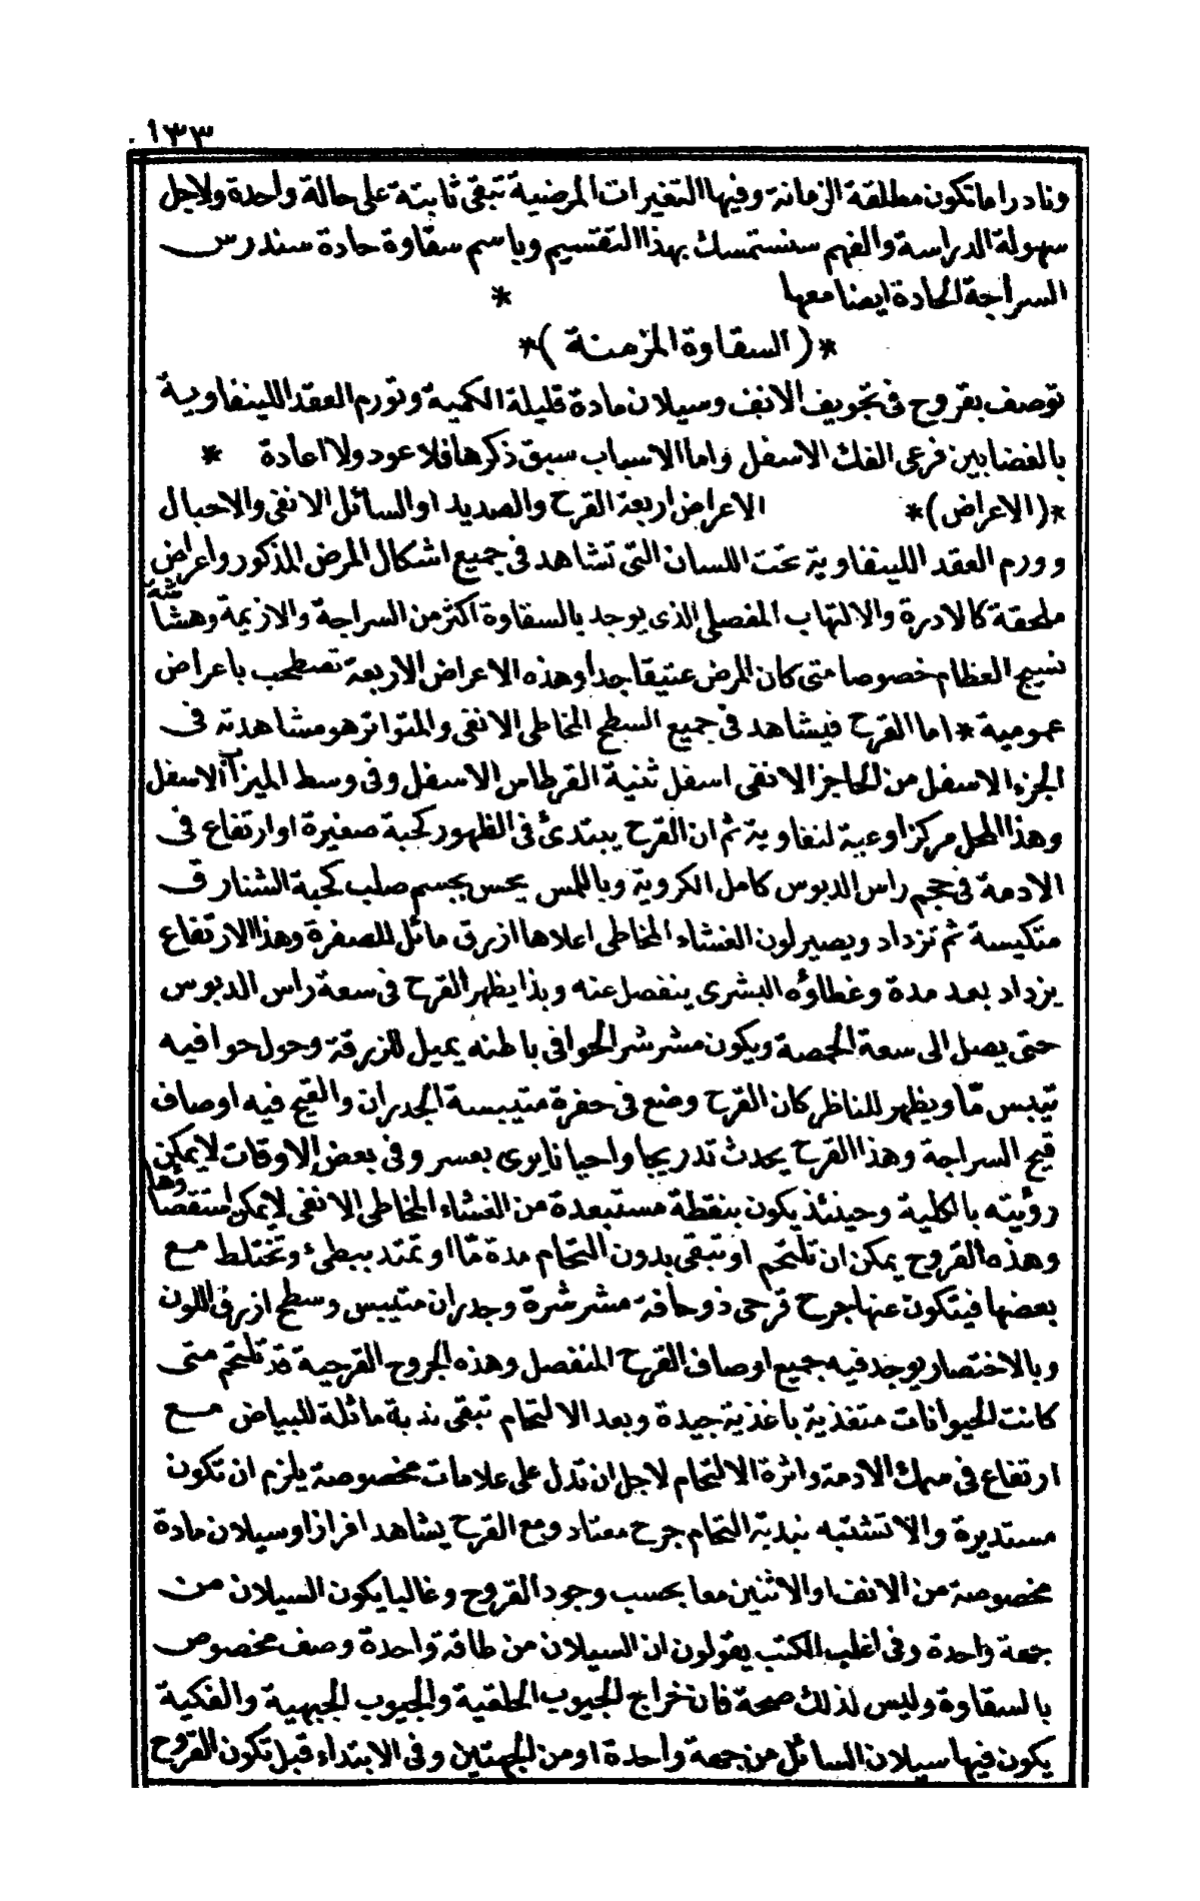 ١٣٣
ونادرا ما تكون مطلقة الزمانة وفيها التغيرات المرضية تبقى ثابتة على حالة واحدة ولاجل
سهولة الدراسة والفهم سنستمسك بهذا التقسيم وباسم سقاوة حادة سندرس
السراجة الحادة ايضا معها *
*( السقاوة المزمنة )*
توصف بقروح فى تجويف الانف وسيلان مادة قليلة الكمية وتورم العقد اللينفاوية
بالفضا بين فرعى الفك الاسفل واما الاسباب سبق ذكرها فلا عود ولا اعادة *
*(الاعراض)* الاعراض اربعة القرح والصديد او السائل الانفى والاحبال
وورم العقد اللينفاوية تحت اللسان التى تشاهد فى جميع اشكال المرض المذكور واعراض
ملحقة كالادرة والالتهاب المفصلى الذى يوجد بالسقاوة اكثر من السراجة والازيمة وهشاشة
نسيج العظام خصوصا متى كان المرض عتيقا جدا وهذه الاعراض الاربعة تصطحب باعراض
عمومية * اما القرح فيشاهد فى جميع السطح المخاطى الانفى والمتواتر هو مشاهدته فى
الجزء الاسفل من الحاجز الانفى اسفل ثنية القرطاس الاسفل وفى وسط الميزاب الاسفل
وهذا المحل مركز اوعية لنفاوية ثم ان القرح يبتدئ فى الظهور كحبة صغيرة او ارتفاع فى
الادمة فى حجم راس الدبوس كامل الكروية وباللمس يحس بجسم صلب كحبة الشنارق
متكيسة ثم تزداد ويصير لون الغشاء المخاطى اعلاها ازرق مائل للصفرة وهذا الارتفاع
يزداد بعد مدة وغطاؤه البشرى ينفصل عنه وبذا يظهر القرح فى سعة راس الدبوس
حتى يصل الى سعة الحمصة ويكون مشرشر الحوافى باطنه يميل للزرقة وحول حوافيه
تيبس مّا ويظهر للناظر كان القرح وضع فى حفرة متيبسة الجدران والقيح فيه اوصاف
قيح السراجة وهذا القرح يحدث تدريجا واحيانا يرى بعسر وفى بعض الاوقات لا يمكن
رؤيته بالكلية وحينئذ يكون بنقطة مستبعدة من الغشاء المخاطى الانفى لا يمكن استقصاؤها
وهذه القروح يمكن ان تلتحم او تبقى بدون التحام مدة مّا او تمتد ببطئ وتختلط مع
بعضها فيتكون عنها جرح قرحى ذو حافة مشرشرة وجدران متيبس وسطح ازرق اللون
وبالاختصار يوجد فيه جميع اوصاف القرح المنفصل وهذه الجروح القرحية قد تلتحم متى
كانت الحيوانات متغذية باغذية جيدة وبعد الالتحام تبقى ندبة مائلة للبياض مع
ارتفاع فى سمك الادمة واثرة الالتحام لاجل ان تدل على علامات مخصوصة يلزم ان تكون
مستديرة والا تشتبه بندبة التحام جرح معتاد ومع القرح يشاهد افراز او سيلان مادة
مخصوصة من الانف او الاثنين معا بحسب وجود القروح وغالبا يكون السيلان من
جهة واحدة وفى اغلب الكتب يقولون ان السيلان من طاقة واحدة وصف مخصوص
بالسقاوة وليس لذلك صحة فان خراج الجيوب الحلقية والجيوب الجبهية والفكية
يكون فيها سيلان السائل من جهة واحدة او من الجهتين وفى الابتداء قبل تكون القروح